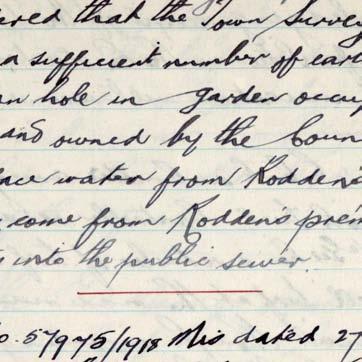 ered that the Town Survey
a sufficient number of cart
an hole in garden occup
and owned by the Coun
face water from Rodden's
come from Rodden's prem
into the public sewer.
o. 57975/1918 Mis dated 27